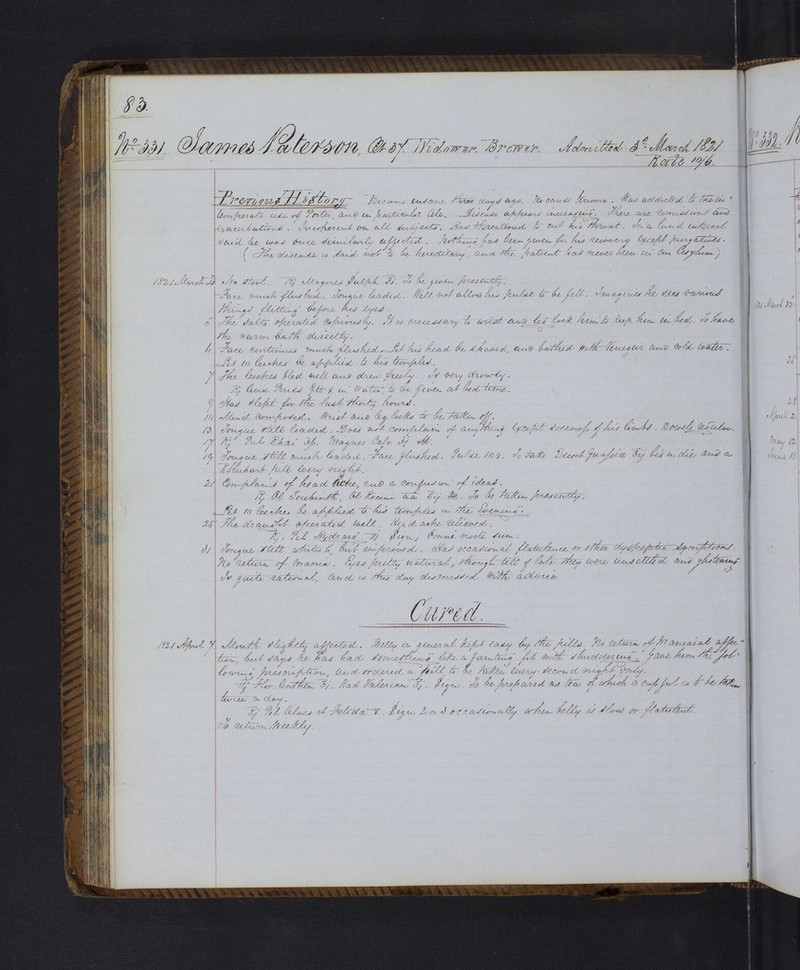 83.
No 331. James Paterson, Æt 37. Widower. Brewer. Admitted 3d March 1821
Rate 10/6
Previous History. Became insane three days ago. No cause known. Was addicted to the in-
temperate use of Porter, and in particular Ale. Disease appears increasing. There are remissions and
exacerbations. Incoherent on all subjects. Has threatened to cut his throat. In a lucid interval
said he was once similarly affected. Nothing has been given for his recovery except purgatives.
(The disease is said not to be hereditary, and the patient has never been in an Asylum)
1821 March 3d No stool. ℞ Magnes Sulph ℥i. To be given presently.
Face much flushed. Tongue loaded. Will not allow his pulse to be felt. Imagines he sees various
things flitting before his eyes
5 The salts operated copiously. It is necessary to wrist and leg lock him to keep him in bed. To have
the warm bath directly.
6 Face continues much flushed. Let his head be shaved, and bathed with Vinegar and cold water.
Let 10 leeches be applied to his temples.
7 The leeches bled well and drew freely. Is very drowsy.
℞ Acid Pruss Gtt x in Water, to be given at bed time.
9 Has slept for the last thirty hours.
Mind composed. Wrist and leg locks to be taken off.
13 Tongue still loaded. Does not complain of any thing except soreness of his limbs. Bowels regular.
17 ℞ Pulv Rhæi Magnes Calc M.
19 Tongue still much loaded. Face flushed. Pulse 102. To take Decoct Quassiæ bis in die and a
Rhubarb pill every night.
21 Complains of head ache, and a confusion of ideas.
℞ Ol Terebinth. Ol Ricini aa M. To be taken presently.
Let 10 leeches be applied to his temples in the Evening.
25 The draught operated well. Head ache relieved.
℞. Pil Hydrarg Sign, Omni nocte sum.
31 Tongue still whitish, but improved. Has occasional flatulence or other dyspeptic symptoms.
No return of mania. Eyes pretty natural, though till of late they were unsettled and glistening
Is quite rational, and is this day dismissed with advice
Cured.
1821 April 7 Mouth slightly affected. Belly in general kept easy by the pills. No return of Maniacal affec-
tion, but says he has had something like a fainting fit with shuddering. Gave him the fol-
lowing prescription, and ordered a pill to be taken every second night only.
℞ Flor Anthem ℥i. Rad Valerian ℥i. Sign. To be prepared as tea of which a cupful is to be taken
twice a day.
℞ Pil Aloes et Fetidæ Sign 2 or 3 occasionally when belly is slow or flatulent.
To return Weekly.
No 332.
March
26
28
April 2
May 12
June 18